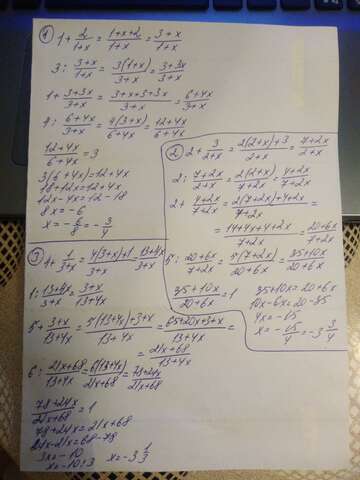 1) 1 + 2/(1+x) = (1+x+2)/(1+x) = (3+x)/(1+x)
3 : (3+x)/(1+x) = 3(1+x)/(3+x) = (3+3x)/(3+x)
1 + (3+3x)/(3+x) = (3+x+3+3x)/(3+x) = (6+4x)/(3+x)
4 : (6+4x)/(3+x) = 4(3+x)/(6+4x) = (12+4x)/(6+4x)
(12+4x)/(6+4x) = 3
3(6+4x) = 12+4x
18+12x = 12+4x
12x-4x = 12-18
8x = -6
x = -6/8 = -3/4
2) 2 + 3/(2+x) = (2(2+x)+3)/(2+x) = (7+2x)/(2+x)
2 : (7+2x)/(2+x) = 2(2+x)/(7+2x) = (4+2x)/(7+2x)
2 + (4+2x)/(7+2x) = (2(7+2x)+4+2x)/(7+2x) =
= (14+4x+4+2x)/(7+2x) = (20+6x)/(7+2x)
5 : (20+6x)/(7+2x) = 5(7+2x)/(20+6x) = (35+10x)/(20+6x)
(35+10x)/(20+6x) = 1
35+10x = 20+6x
10x-6x = 20-35
4x = -15
x = -15/4 = -3 3/4
3) 4 + 1/(3+x) = (4(3+x)+1)/(3+x) = (13+4x)/(3+x)
1 : (13+4x)/(3+x) = (3+x)/(13+4x)
5 + (3+x)/(13+4x) = (5(13+4x)+3+x)/(13+4x) = (65+20x+3+x)/(13+4x) =
= (21x+68)/(13+4x)
6 : (21x+68)/(13+4x) = 6(13+4x)/(21x+68) = (78+24x)/(21x+68)
(78+24x)/(21x+68) = 1
78+24x = 21x+68
24x-21x = 68-78
3x = -10
x = -10:3 x = -3 1/3